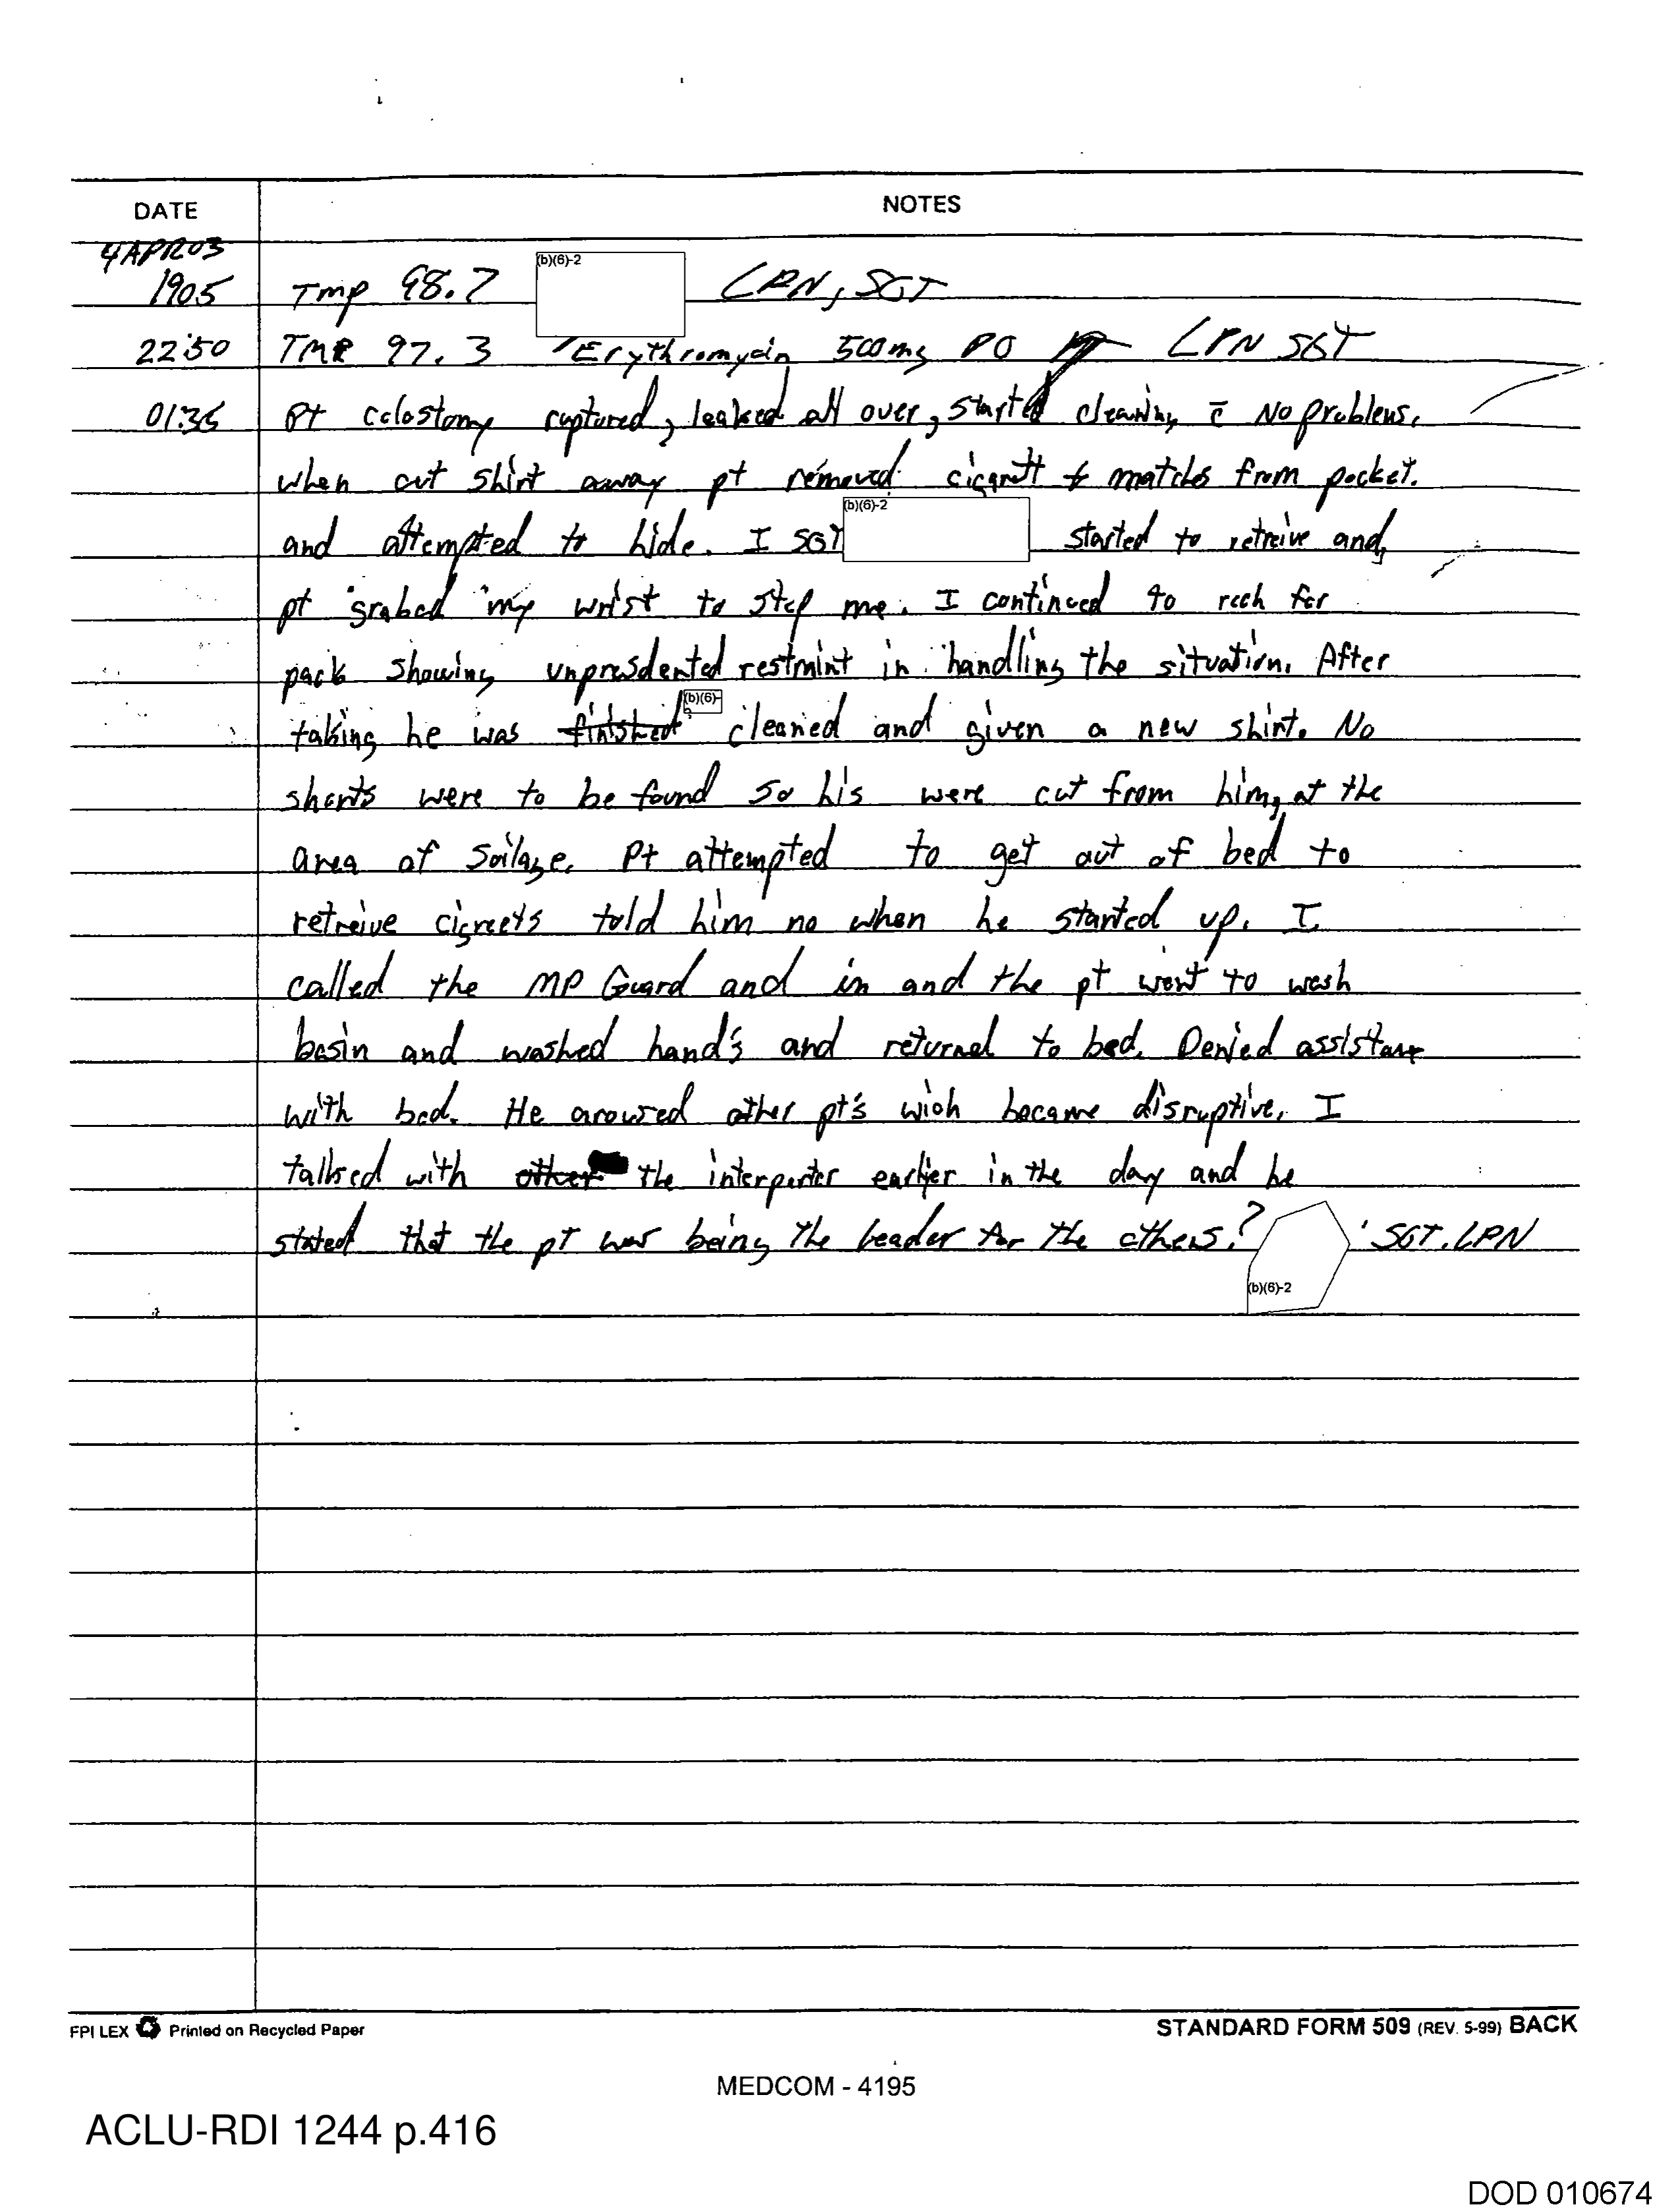 DATE NOTES
4APR03
1905 Tmp 98.7 (b)(6)-2 LPN, SGT
22:50 TMP 97.3 Erythromycin 500mg PO LPN SGT
01:36 Pt colostomy ruptured, leaked all over, started cleaning c̄ No problems.
when cut shirt away pt removed cigarett & matches from pocket.
and attempted to hide. I SGT (b)(6)-2 started to retreive and,
pt grabed my wrist to stop me. I continued to rech for
pack showing unpresdented restraint in handling the situation. After
taking he was finished (b)(6)- cleaned and given a new shirt. No
shorts were to be found so his were cut from him, at the
area of soilage. Pt attempted to get out of bed to
retreive cigreets told him no when he started up. I
called the MP Guard and in and the pt went to wash
basin and washed hand's and returned to bed. Denied assistance
with bed. He aroused other pt's wich became disruptive. I
talked with other the interperter earlier in the day and he
stated that the pt was being the leader for the others.? (b)(6)-2 SGT. LPN
FPI LEX Printed on Recycled Paper STANDARD FORM 509 (REV. 5-99) BACK
MEDCOM - 4195
ACLU-RDI 1244 p.416
DOD 010674